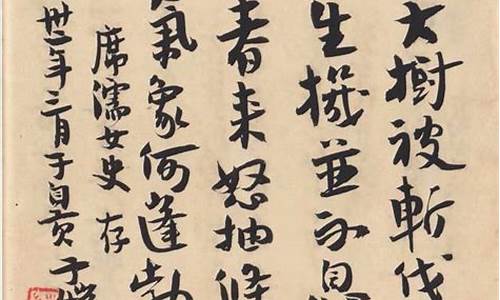 大樹被斬伐
生機並不息
春來怒抽條
氣象何蓬勃
席濡女史 存
卅二年三月于自貢 子愷